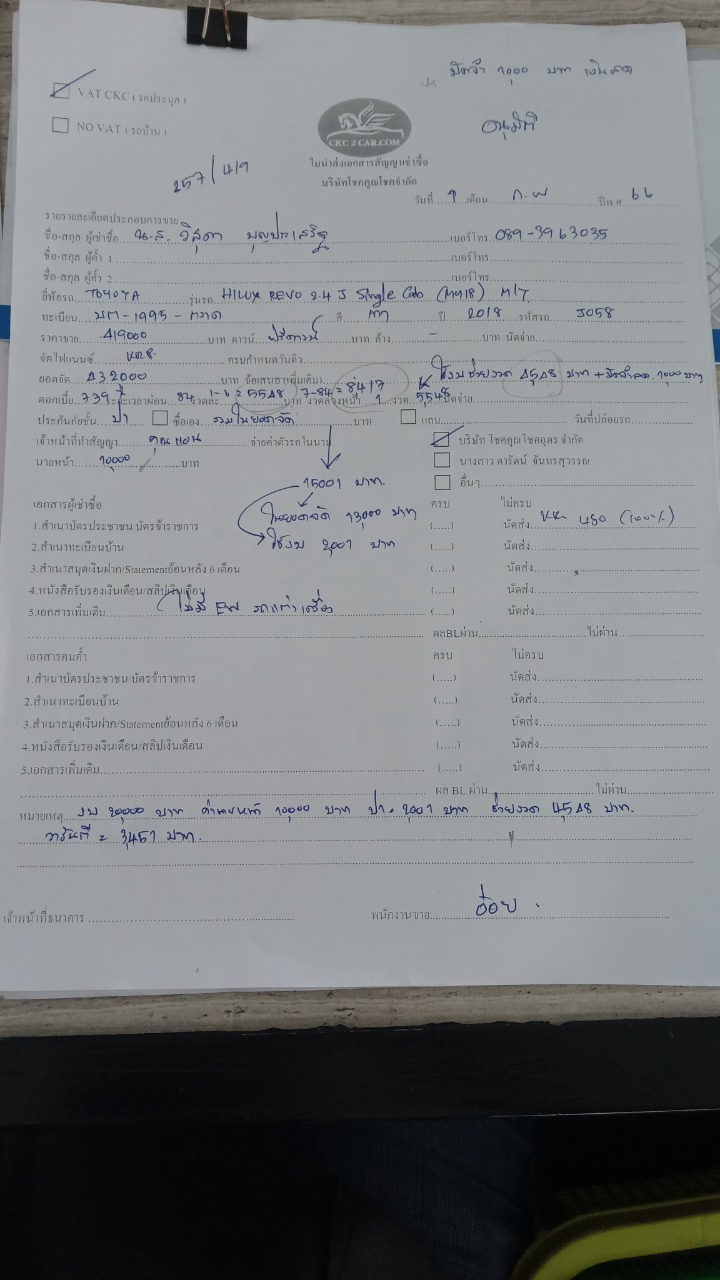 มัดจำ 1000 บาท เงินสด
VAT CKC ( รถประมูล )
อนุมัติ
NO VAT ( รถบ้าน )
CKC 2 CAR.COM
257/419
ใบนำส่งเอกสารสัญญาเช่าซื้อ
บริษัทโชคคูณโชคจำกัด
วันที่ 1 เดือน ก.พ ปีพ.ศ. 66
รายรายละเอียดประกอบการขาย
ชื่อ-สกุล ผู้เช่าซื้อ น.ส. วิสุดา บุญประเสริฐ เบอร์โทร. 089-3963035
ชื่อ-สกุล ผู้ค้ำ 1 เบอร์โทร
ชื่อ-สกุล ผู้ค้ำ 2 เบอร์โทร
ยี่ห้อรถ TOYOTA รุ่นรถ. HILUX REVO 2.4 J Single Cab (MY18) M/T
ทะเบียน บต-1995-ตราด สี เทา ปี 2018 รหัสรถ. J058
ราคาขาย 419000 บาท ดาวน์ ฟรีดาวน์ บาท ค้าง - บาท นัดจ่าย
จัดไฟแนนซ์ ครบกำหนดวันดิว
ยอดจัด 432000 บาท ข้อเสนอ (เพิ่มเติม)
ใช้งบช่วยงวด 4548 บาท + มัดจำสด 1000 บาท
ดอกเบี้ย 7.39 ระยะเวลาผ่อน 84 งวดละ 1-6 = 5548 บาท 7-84 = 8417 งวดล่วงหน้า 1 งวด 5548 นัดจ่าย
ประกันภัยชั้น ป1 ซื้อเอง รวมในยอดจัด บาท แถม วันที่ปล่อยรถ
เจ้าหน้าที่ทำสัญญา คุณแอน จ่ายค่าตัวรถในนาม บริษัท โชคคูณโชคอุดร จำกัด
นายหน้า 10000 บาท นางสาว ดารัตน์ จันทรสุวรรณ
15001 บาท. อื่นๆ
เอกสารผู้เช่าซื้อ ครบ ไม่ครบ
ในยอดจัด 13000 บาท
1.สำเนาบัตรประชาชน/บัตรข้าราชการ (.....) นัดส่ง 450 (100%)
ใช้งบ 2001 บาท
2.สำเนาทะเบียนบ้าน (.....) นัดส่ง
3.สำเนาสมุดเงินฝาก/Statementย้อนหลัง 6 เดือน (.....) นัดส่ง
4.หนังสือรับรองเงินเดือน/สลิปเงินเดือน (.....) นัดส่ง
5.เอกสารเพิ่มเติม ไม่มี EW (.....) นัดส่ง
ผลBLผ่าน ไม่ผ่าน
เอกสารคนค้ำ ครบ ไม่ครบ
1.สำเนาบัตรประชาชน/บัตรข้าราชการ (.....) นัดส่ง
2.สำเนาทะเบียนบ้าน (.....) นัดส่ง
3.สำเนาสมุดเงินฝาก/Statementย้อนหลัง 6 เดือน (.....) นัดส่ง
4.หนังสือรับรองเงินเดือน/สลิปเงินเดือน (.....) นัดส่ง
5.เอกสารเพิ่มเติม (.....) นัดส่ง
ผล BL ผ่าน ไม่ผ่าน
หมายเหตุ งบ 20,000 บาท ค่านายหน้า 10000 บาท ป1 = 2,001 บาท ช่วยงวด 4,548 บาท.
การันตี = 3,451 บาท.
เจ้าหน้าที่ธนาคาร พนักงานขาย อ้อย